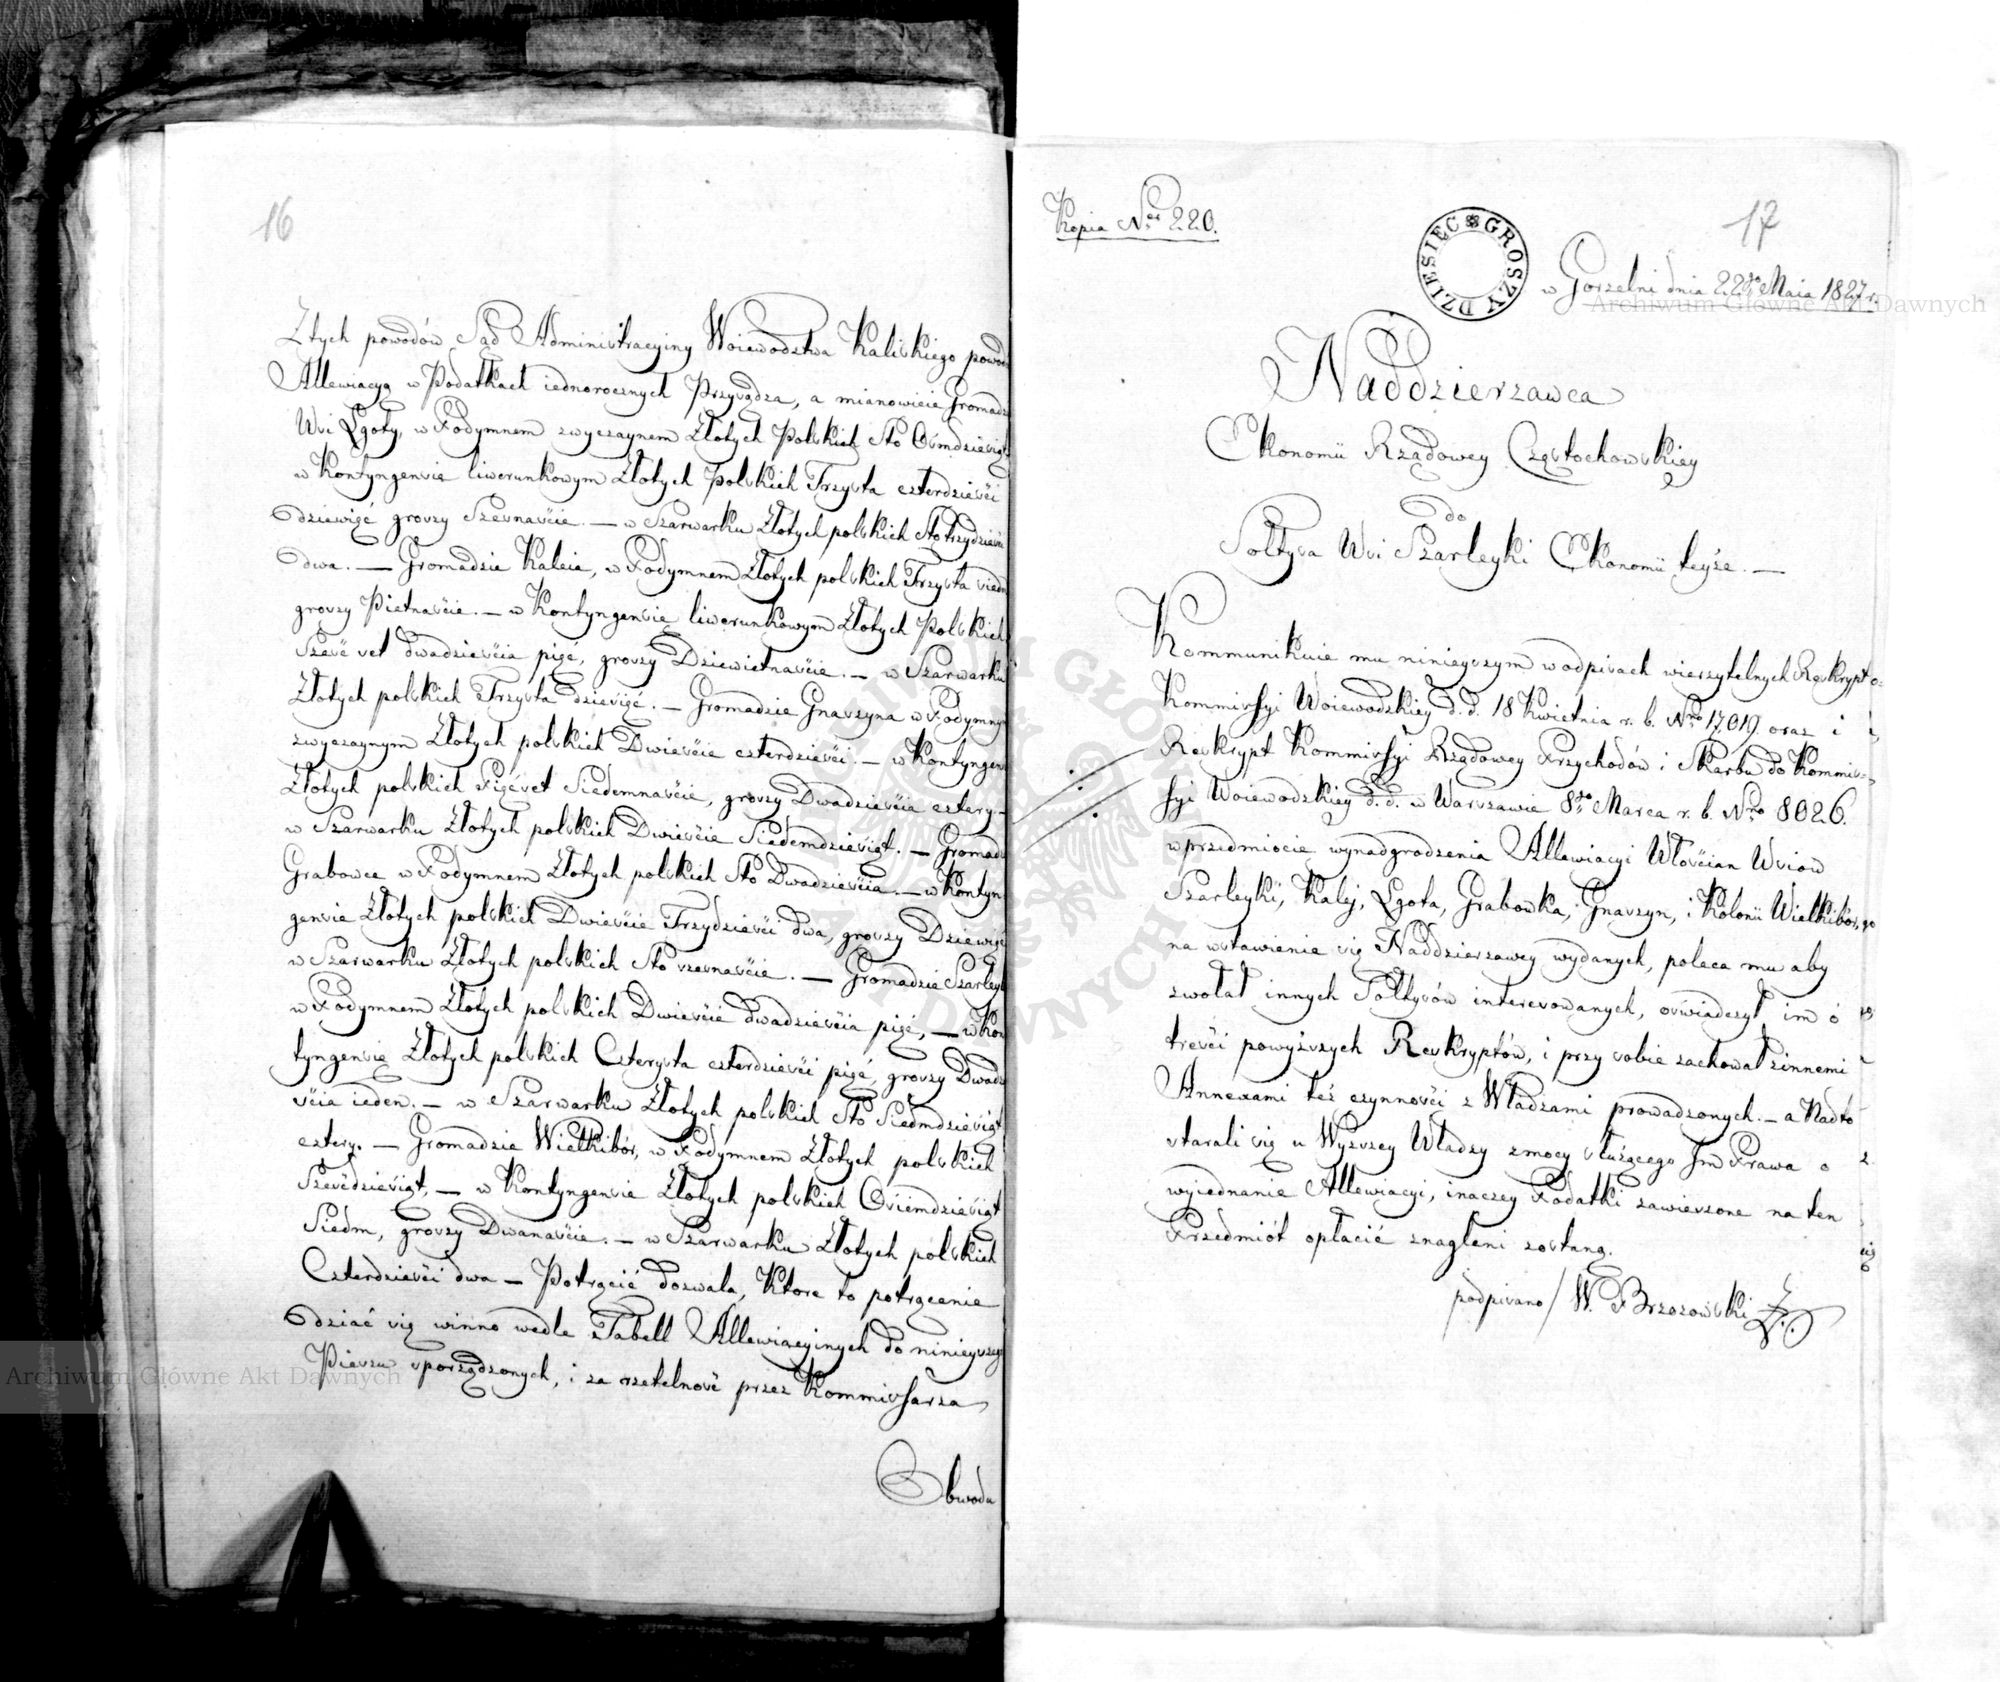 16
Z tych powodów Sąd Administracyiny Woiewodztwa Kaliskiego powod
Allewiacyą w Podatkach iednorocznych Przysądza, a mianowicie Gromadz
Wsi Lgoty, w Podymnem zwyczaynem Złotych Polskich Sto Osmdziesiąt
w Kontyngensie liwerunkowym Złotych Polskich Trzysta czterdzieści
dziewięć groszy Szesnaście. — w Szarwarku Złotych polskich Sto trzydzieści
dwa. — Gromadzie Kaleie, w Podymnem Złotych polskich Trzysta siedm
groszy Pietnaście. — w Kontyngensie liwerunkowym Złotych Polskich
Sześć set dwadzieścia pięć, groszy Dziewietnaście. — w Szarwarku
Złotych polskich Trzysta dziesięć. — Gromadzie Gnaszyna w Podymny
zwyczaynym Złotych polskich Dwieście czterdzieści. — w Kontyngen
Złotych polskich Pięćset Siedemnaście, groszy Dwadzieścia cztery —
w Szarwarku Złotych polskich Dwieście Siedemdziesiąt. — Gromadz
Grabowce w Podymnem Złotych polskich Sto Dwadzieścia. — w Kontyn
gensie Złotych polskich Dwieście Trzydzieści dwa, groszy Dziewięć
w Szarwarku Złotych polskich Sto szesnaście. — Gromadzie Szarleyk
w Podymnem Złotych polskich Dwieście dwadzieścia pięć, — w Kon
tyngensie Złotych polskich Czterysta czterdzieści pięć, groszy Dwadz
ścia ieden. — w Szarwarku Złotych polskich Sto Siedmdziesiąt
cztery. — Gromadzie Wielkibór, w Podymnem Złotych polskich
Sześćdziesiąt, — w Kontyngensie Złotych polskich Ośiemdziesiąt
Siedm, groszy Dwanaście. — w Szarwarku Złotych polskich
Czterdzieści dwa — Potrącić dozwala, Ktore to potrącenie
dziać się winno wedle Tabell Allewiacyinych do ninieyszego
Pisma sporządzonych, i za rzetelność przez Kommissarza
Obwodu
Kopia Nro 220.
DZIESIĘC GROSZY
17
w Gorzelni dnia 22go Maia 1827 r.
Naddzierzawca
Ekonomii Rządowey Częstochowskiey
do
Sołtysa Wsi Szarleyki Ekonomii teyże. —
Kommunikuie mu ninieyszym w odpisach wierzytelnych Reskrypt
Kommissyi Woiewodzkiey d. d. 18 Kwietnia r. b. Nro 17,019. oraz i
Reskrypt Kommissyi Rządowey Przychodów i Skarbu do Kommis-
syi Woiewodzkiey d. d. w Warszawie 8go Marca r. b. Nro 8026.
w przedmiocie wynadgrodzenia Allewiacyi Włościan Wsiow
Szarleyki, Kaley, Lgota, Grabowka, Gnaszyn, i Kolonii Wielkibór,
na wstawienie się Naddzierzawcy wydanych, poleca mu aby
zwołał innych Sołtysów interesowanych, oświadczył im o
treści powyższych Reskryptów, i przy sobie zachował z innemi
Annexami też czynności z Władzami prowadzonych. — a Nadto
starali się u Wyższey Władzy z mocy służącego Im Prawa o
wyiednanie Allewiacyi, inaczey Podatki zawieszone na ten
Przedmiót opłacić znagleni zostaną.
podpisano / W. Brzozowski
Archiwum Główne Akt Dawnych
Archiwum Główne Akt Dawnych
ARCHIWUM GŁÓWNE AKT DAWNYCH